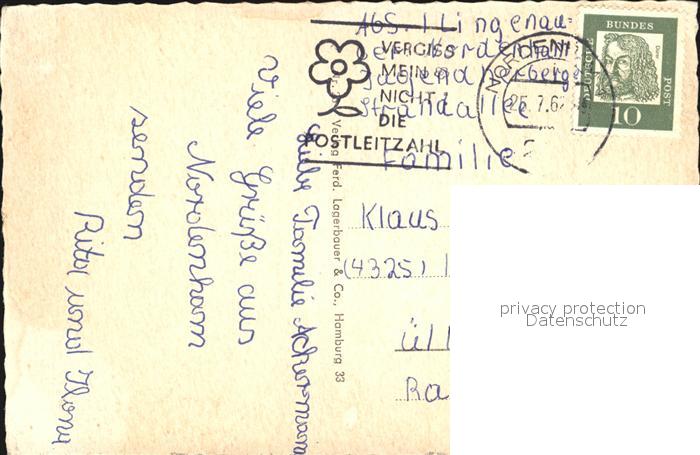 Abs. Illingenau
Nordenham
Jugendherberge
Strandallee
VERGISS
MEIN
NICHT
DIE
POSTLEITZAHL
25.7.62
DEUTSCHE
BUNDES
POST
10
Familie
Klaus
(4325)
Ra
Verlag Ferd. Lagerbauer & Co., Hamburg 33
Liebe Familie Ackermann
Viele Grüße aus
Nordenham
senden
Rita und Ilona
privacy protection
Datenschutz